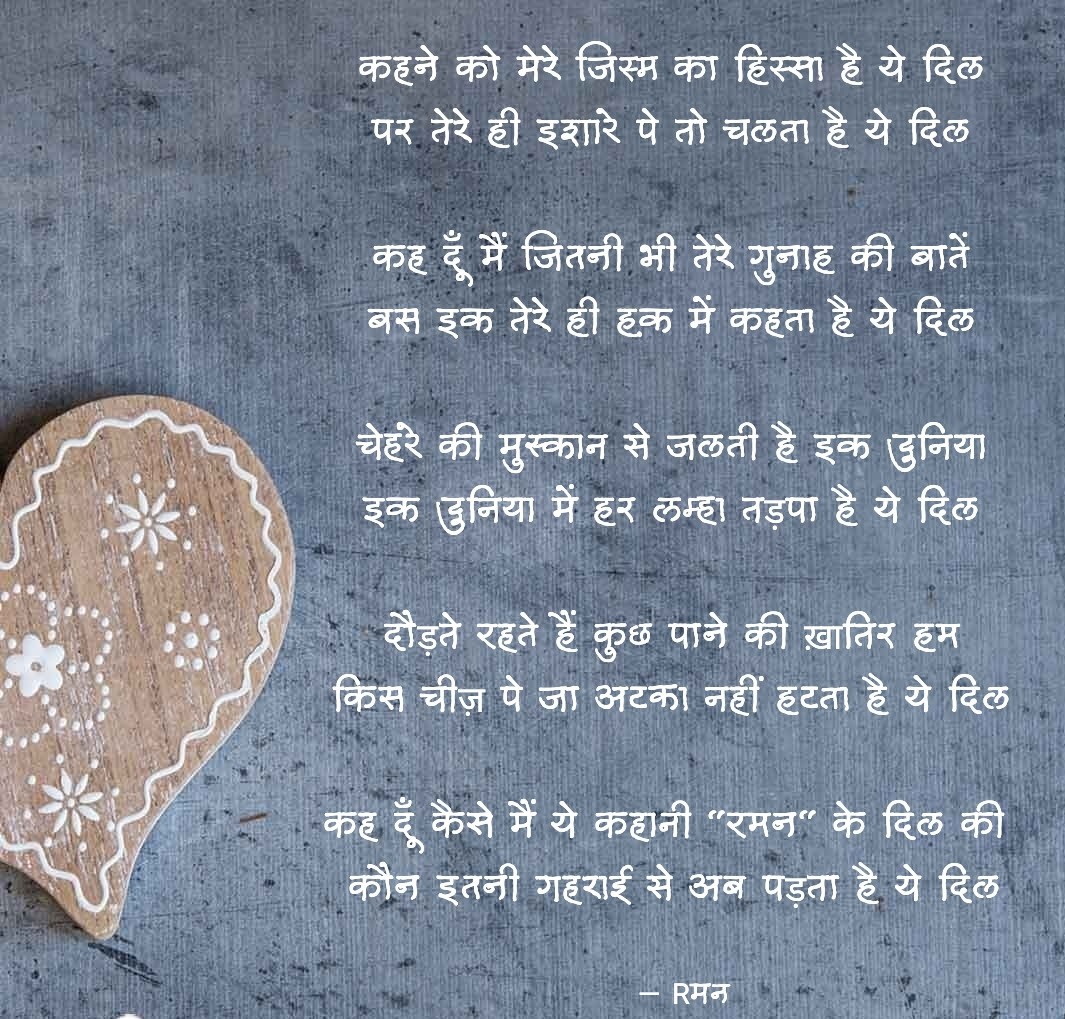 कहने को मेरे जिस्म का हिस्सा है ये दिल
पर तेरे ही इशारे पे तो चलता है ये दिल
कह दूँ मैं जितनी भी तेरे गुनाह की बातें
बस इक तेरे ही हक़ में कहता है ये दिल
चेहरे की मुस्कान से जलती है इक दुनिया
इक दुनिया में हर लम्हा तड़पा है ये दिल
दौड़ते रहते हैं कुछ पाने की ख़ातिर हम
किस चीज़ पे जा अटका नहीं हटता है ये दिल
कह दूँ कैसे मैं ये कहानी “रमन“ के दिल की
कौन इतनी गहराई से अब पड़ता है ये दिल
– Rमन